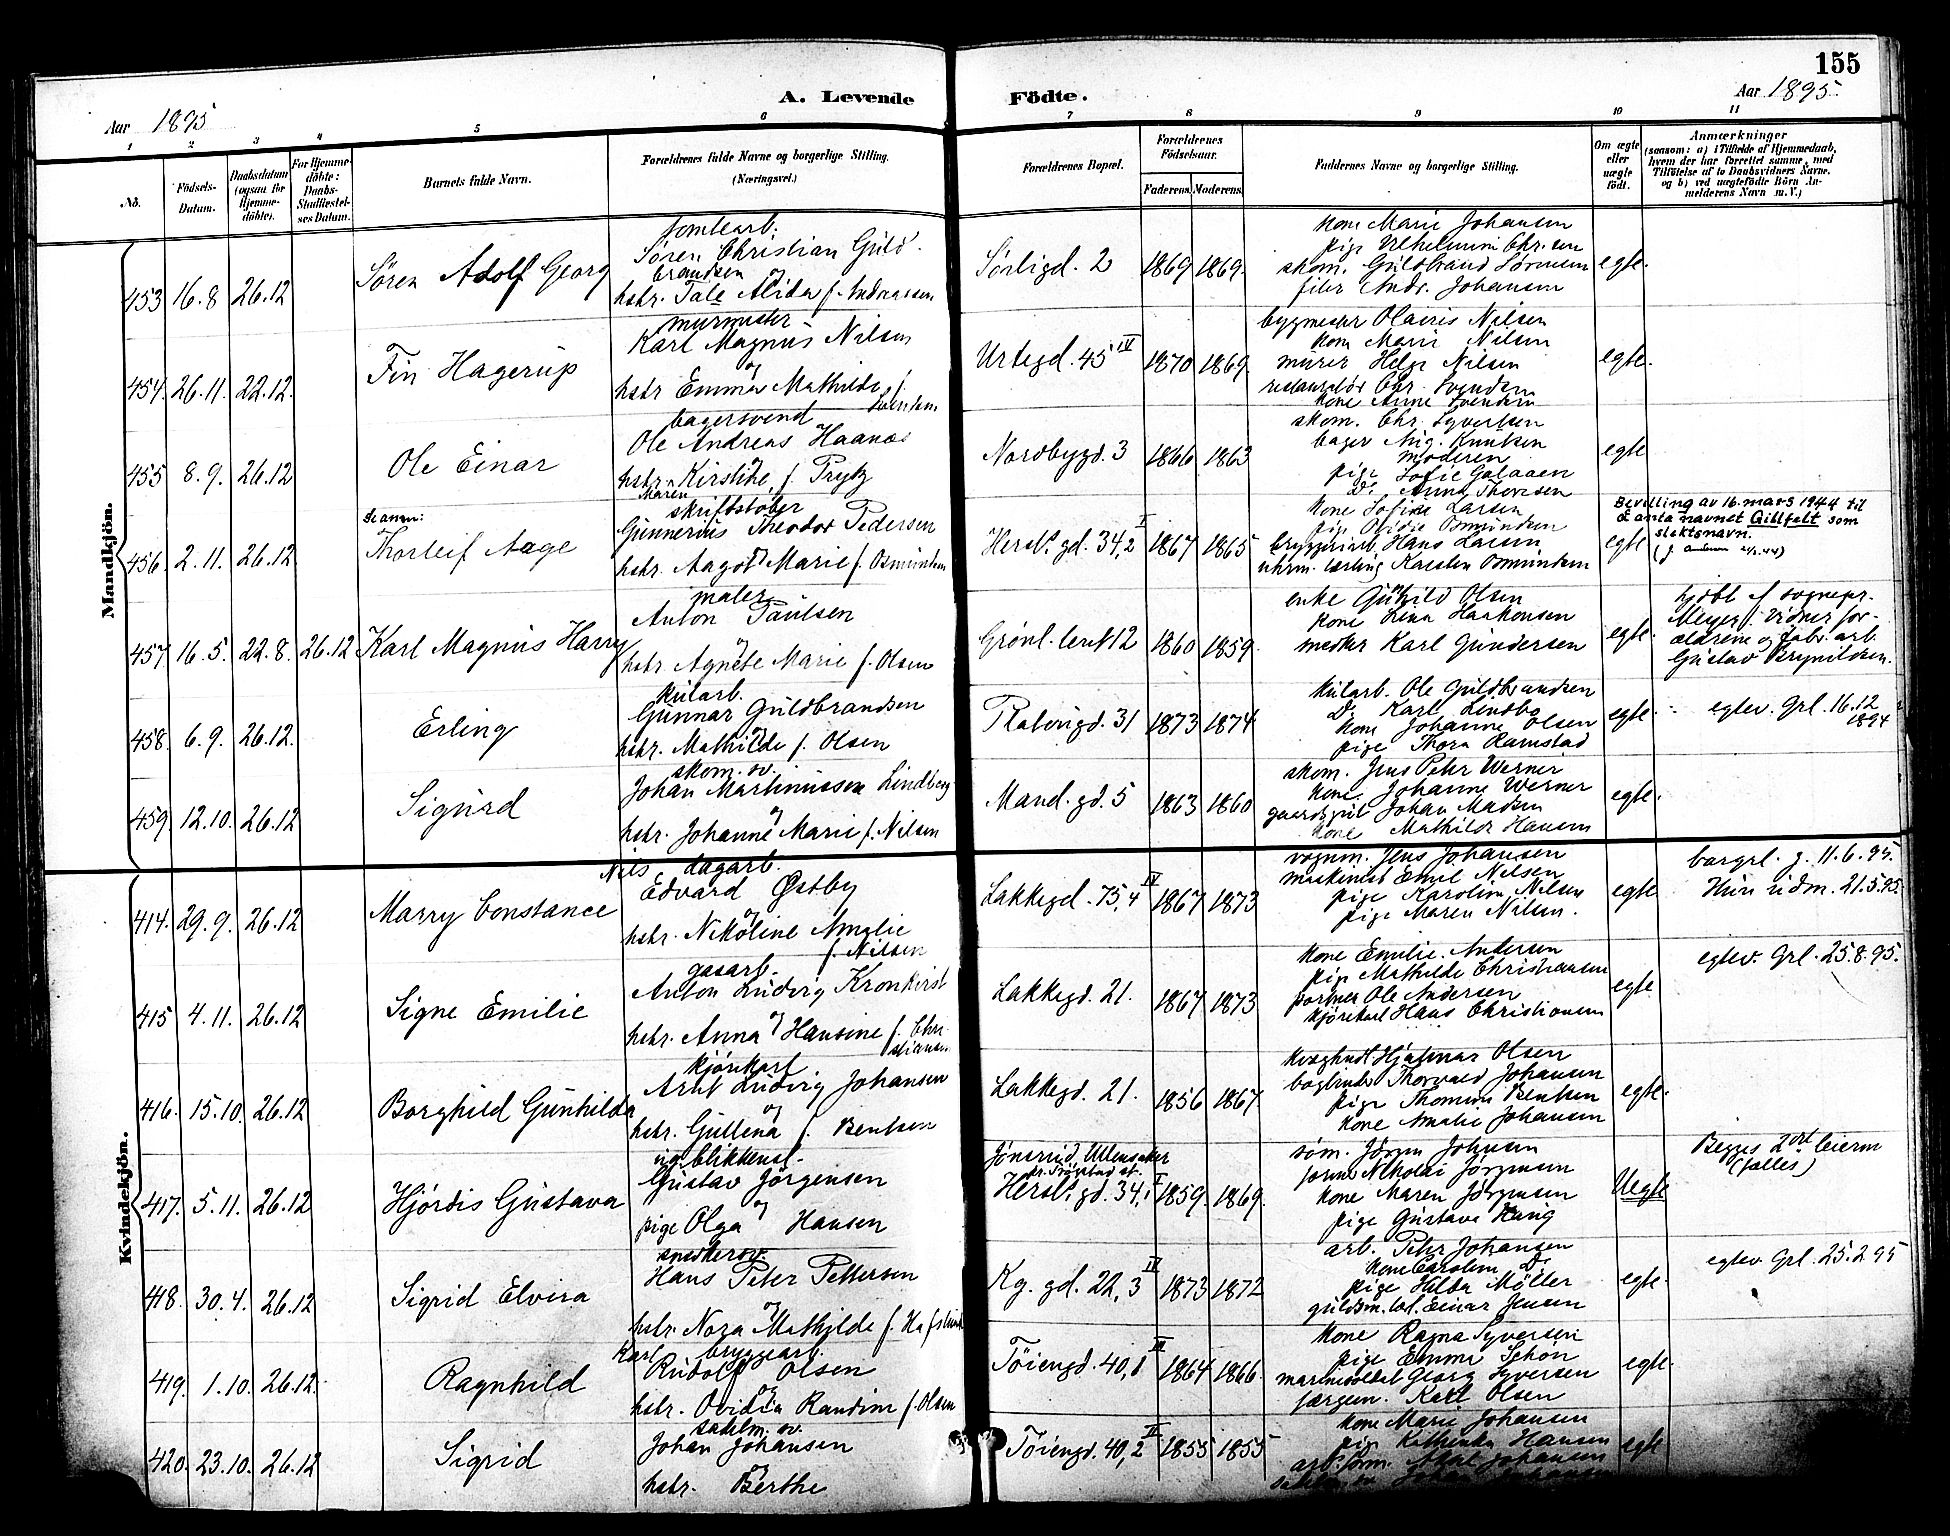 155
Aar 1895
A. Levende
Födte.
Aar 1895.
1 2 3 4 5 6 7 8 9 10 11
No.
Födsels-
Datum.
Daabsdatum
(ogsaa for
Hjemme-
døbte).
For Hjemme-
döbte:
Daabs-
Stadfæstel-
ses Datum.
Barnets fulde Navn.
Forældrenes fulde Navne og borgerlige Stilling.
(Næringsvei.)
Forældrenes Bopæl.
Forældrenes
Födselsaar.
Faderens. Moderens.
Faddernes Navne og borgerlige Stilling.
Om ægte
eller
uægte
födt.
Anmærkninger
(saasom: a) i Tilfælde af Hjemmedaab,
hvem der har forrettet samme, med
Tilföielse af to Daabsvidners Navne.
og b) ved uægtefödte Börn An-
melderens Navn m. V.)
Mandkjön.
453 16.8 26.12 Sören Adolf Georg
tomtearb.
Sören Christian Guld-
brandsen
og
hstr. Tale Alida f. Andreassen
Sörligd. 2 1869 1869.
kone Marie Johansen
pige
skom. Guldbrand Sörensen
filer Andr. Johansen
egte.
454. 26.11. 22.12. Fin Hagerup
murmester
Karl Magnus Nilsen
og
hstr Emma Mathilde f.
Svendsen
Urtegd. 45 IV 1870 1869.
bygmester Olaus Nilsen
kone Marie Nilsen
murer Helge Nilsen
restauratör Chr. Svendsen
kone Anne Svendsen
egte.
455 8.9. 26.12 Ole Einar
bagersvend
Ole Andreas Haanæs
og
hstr. Kirstine, f. Prytz
Maren
Nordbygd. 3 1866 1863
skom. Chr. Syvertsen
bager Aug. Knutsen
Moderen
pige Sofie Galaaen
Do Anna Thoresen
egte
456. 2.11. 26.12 Thorleif Aage
se anm:
skriftstöber
Gunnerius Theodor Pedersen
og
hstr. Aagot Marie f. Osmundsen
Hersl. gd. 34,2 I 1867 1865
kone Sofine Larsen
pige Ovidie Osmundsen
bryggeriarb. Hans Larsen
uhrm. lærling Karsten Osmundsen
egte
Bevilling av 16. mars 1944 til
å anta navnet Gillfelt som
slektsnavn.
457. 16.5. 22.8. 26.12 Karl Magnus Harry
maler
Anton Paulsen
og
hstr. Agnete Marie f. Olsen
Grönl. leret 12 1860 1859.
enke Gunhild Olsen
kone Lina Haakonsen
mester Karl Gundersen
egte.
hjdbt. af sognepr.
Meyer. Vidner for-
ældrene og fabr. arb.
Gustav Brynildsen.
458. 6.9. 26.12. Erling
kularb.
Gunnar Guldbrandsen
og
hstr. Mathilde f. Olsen
Platougd. 31 1873 1874
kularb. Ole Guldbrandsen
Do Karl Lindbo
kone Johanne Olsen
pige Thora Ramstad
egte.
egtev. Grl. 16.12
1894
459. 12.10. 26.12 Sigurd
skom. sv.
Johan Martinussen Lindberg
og
hstr. Johanne Marie f. Nilsen
Mand. gd. 5 1863 1860
skom. Jens Peter Werner
kone Johanne Werner
gaardsgut Johan Madsen
kone Mathilde Hansen
egte.
Kvindekjön.
414. 29.9. 26.12 Marry Constance
Nils dagarb.
Edvard Østby
og
hstr. Nikoline Amalie
f. Nilsen
Lakkegd. 75,4 IV 1867 1873
vognm. Jens Johansen
maskinist Emil Nilsen
pige Karoline Nilsen
pige Maren Nilsen.
egte
borgrl. g. 11.6.95.
Hun udm. 21.5.95.
415 4.11. 26.12 Signe Emilie
gasarb.
Anton Ludvig Kronkvist
og
hstr. Anna Hansine f. Chri
stiansen
Lakkegd. 21. 1867 1873
kone Emilie Andersen
pige Mathilde Christiansen
former Ole Andersen
kjörekarl Hans Christiansen
egte
egtev. Grl. 25.8.95.
416. 15.10. 26.12 Borghild Gunhilda
kjörekarl
Arnt Ludvig Johansen
og
hstr. Gullena f. Bentsen
Lakkegd. 21. 1856 1867
Hjalmar Olsen
bogtrykker Thorvald Johansen
pige Thomine Bentsen
kone Amalie Johansen
egte.
417. 5.11. 26.12 Hjördis Gustava
ug. blikkensl.
Gustav Jörgensen
og
pige Olga Hansen
Jönsrud, Ullensaker
Hersl. gd. 34,1 I 1859. 1869.
söm. Jörgen Johnsen
former Nikolai Jörgensen
kone Maren Jörgensen
pige Gustava Haug
Uegte
Begges 2det leierm
(fælles)
418. 30.4. 26.12 Sigrid Elvira
snedkersv.
Hans Peter Pettersen
og
hstr. Nora Mathilde f. Hafslund
Kg. gd. 22,3 IV 1873 1872
arb. Peter Johansen
kone Caroline Do
pige Hilda Möller
guldsm. læl. Einar Jensen
egte.
egtev. Grl. 25.2.95
419. 1.10. 26.12. Ragnhild
Karl bryggearb.
Rudolf Olsen
og
hstr. Ovidia Randine f. Olsen
Töiengd. 40,1 III 1864 1866
kone Ragna Syversen
pige Emma Schön
marinesoldat Georg Syversen
færgem. Karl Olsen
egte.
420. 23.10. 26.12 Sigrid
sadelm. sv.
Johan Johansen
og
hstr. Berthe
Töiengd. 40,2 II 1855 1855
kone Marie Johansen
pige Kathinka Hansen
arb. form. Axel Johansen
egte